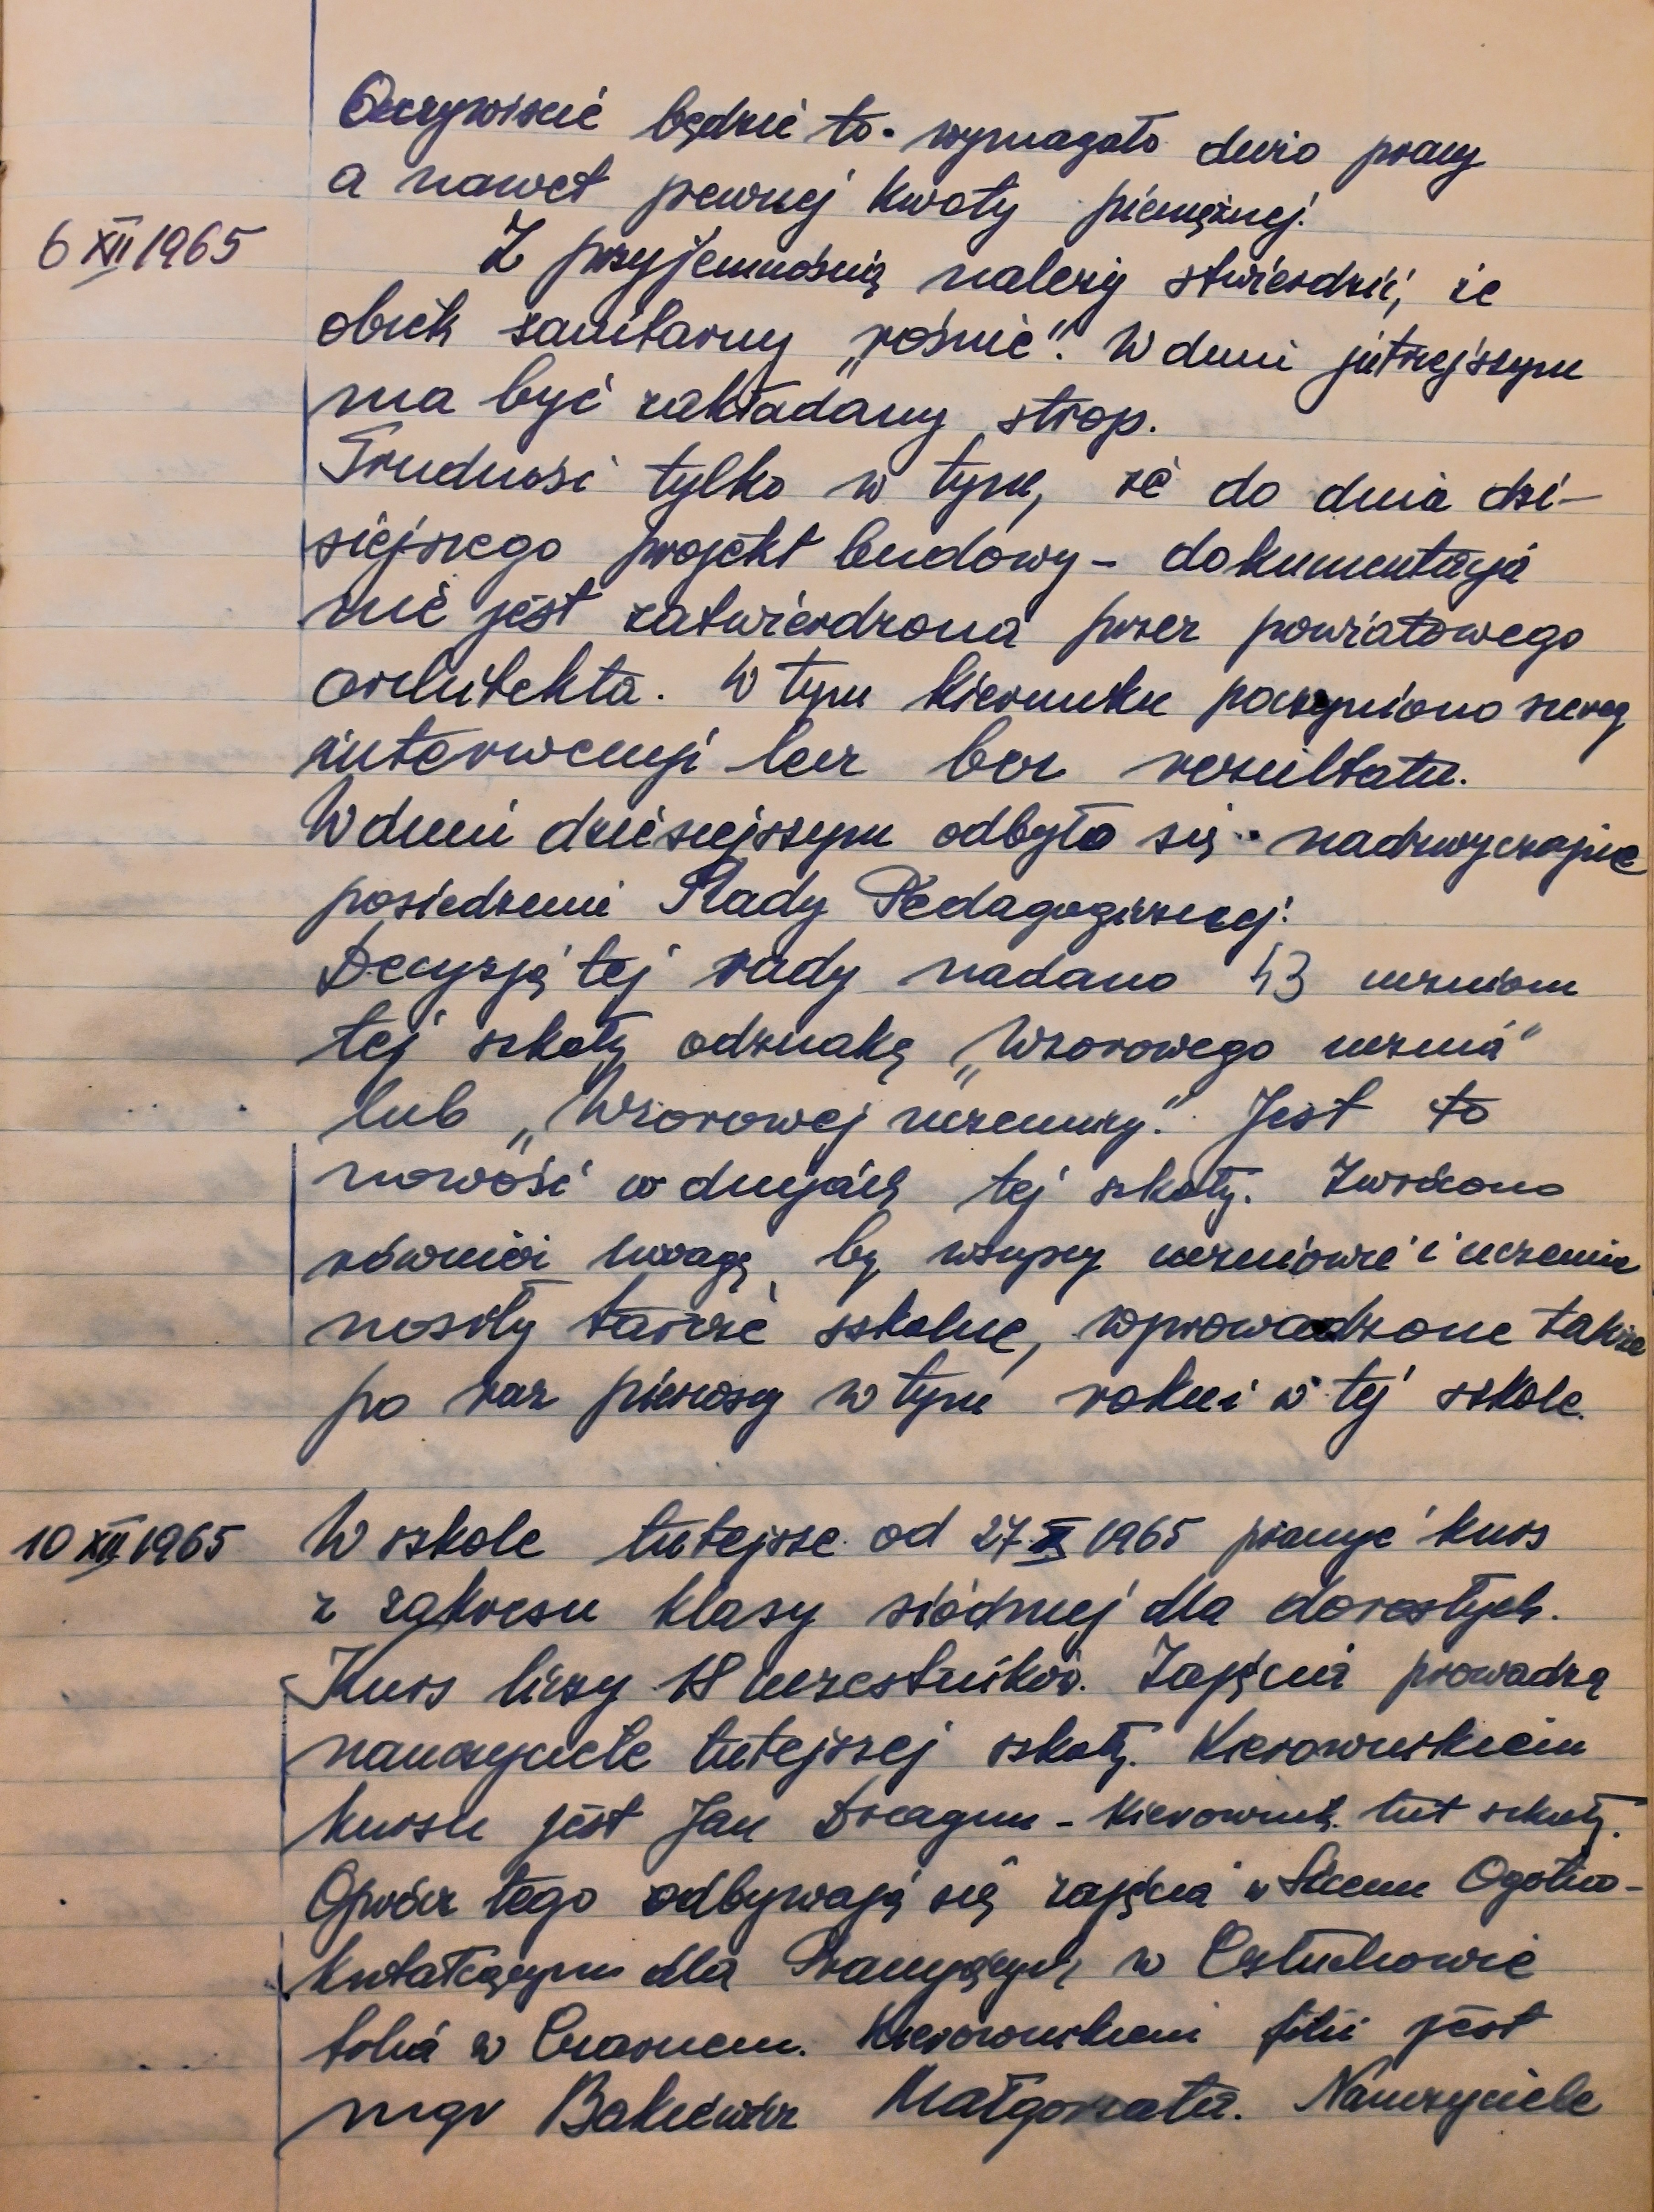 Oczywiście będzie to wymagało dużo pracy
a nawet pewnej kwoty pieniężnej.
6 XII 1965
Z przyjemnością należy stwierdzić, że
obiekt sanitarny „rośnie”. W dniu jutrzejszym
ma być zakładany strop.
Trudności tylko w tym, że do dnia dzi-
siejszego projekt budowy - dokumentacja
nie jest zatwierdzona przez powiatowego
architekta. W tym kierunku poczyniono szereg
interwencji lecz bez rezultatu.
W dniu dzisiejszym odbyło się nadzwyczajne
posiedzenie Rady Pedagogicznej.
Decyzją tej rady nadano 43 uczniom
tej szkoły odznakę „Wzorowego ucznia”
lub „Wzorowej uczennicy”. Jest to
nowość w dziejach tej szkoły. Zwrócono
również uwagę by wszyscy uczniowie i uczennice
nosiły tarcze szkolne, wprowadzone także
po raz pierwszy w tym roku w tej szkole.
10 XII 1965
W szkole tutejsze od 27 X 1965 pracuje kurs
z zakresu klasy siódmej dla dorosłych.
Kurs liczy 18 uczestników. Zajęcia prowadzą
nauczyciele tutejszej szkoły. Kierownikiem
kursu jest Jan Dragun - kierownik tut szkoły.
Oprócz tego odbywają się zajęcia w Liceum Ogólno-
kształcącym dla Pracujących w Człuchowie
w Czarnem. Kierownikiem filii jest
mgr Małgorzata. Nauczyciele